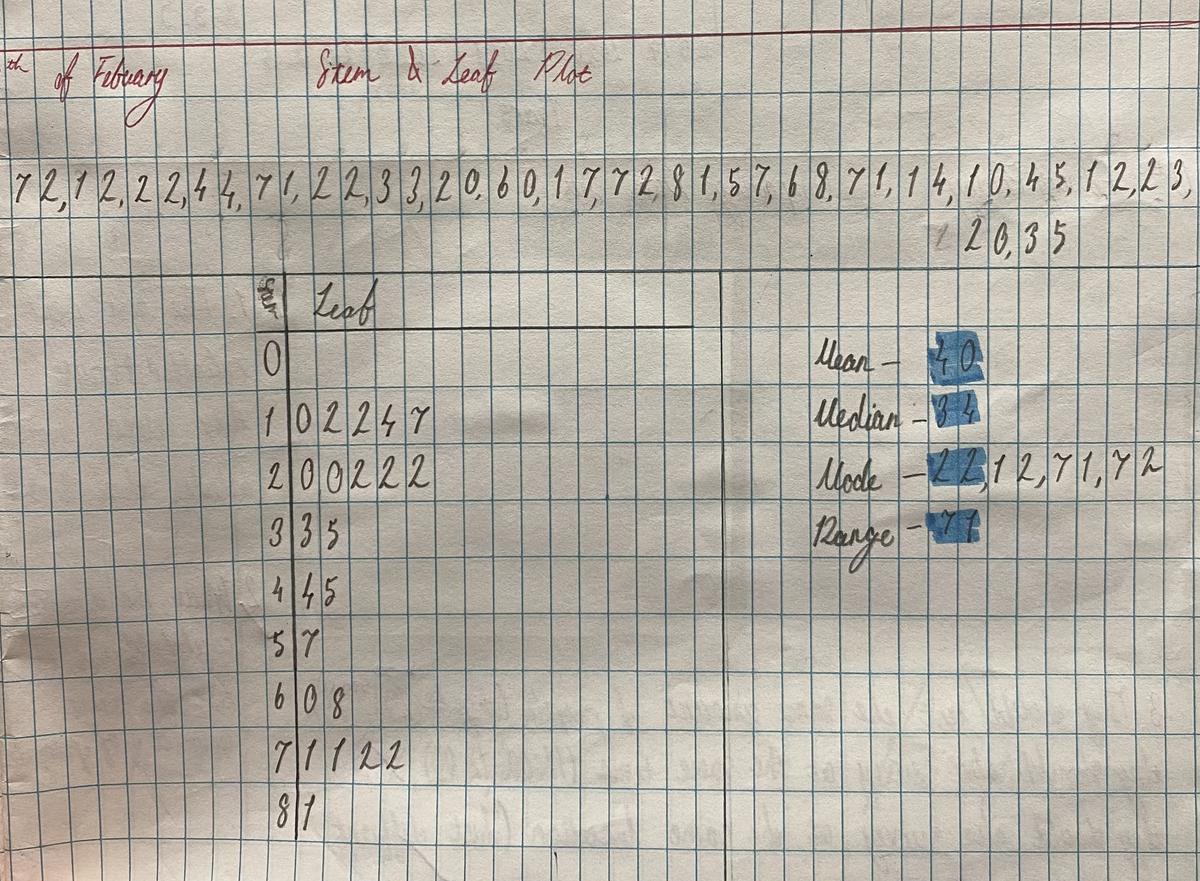 th of Febuary Stem & Leaf Plot
72,12,22,44,71,22,33,20,60,17,72,81,57,68,71,14,10,45,12,23,
20,35
Stem Leaf
0
1 0 2 2 4 7
2 0 0 2 2 2
3 3 5
4 4 5
5 7
6 0 8
7 1 1 2 2
8 1
Mean - 40
Median - 34
Mode - 22,12,71,72
Range - 71